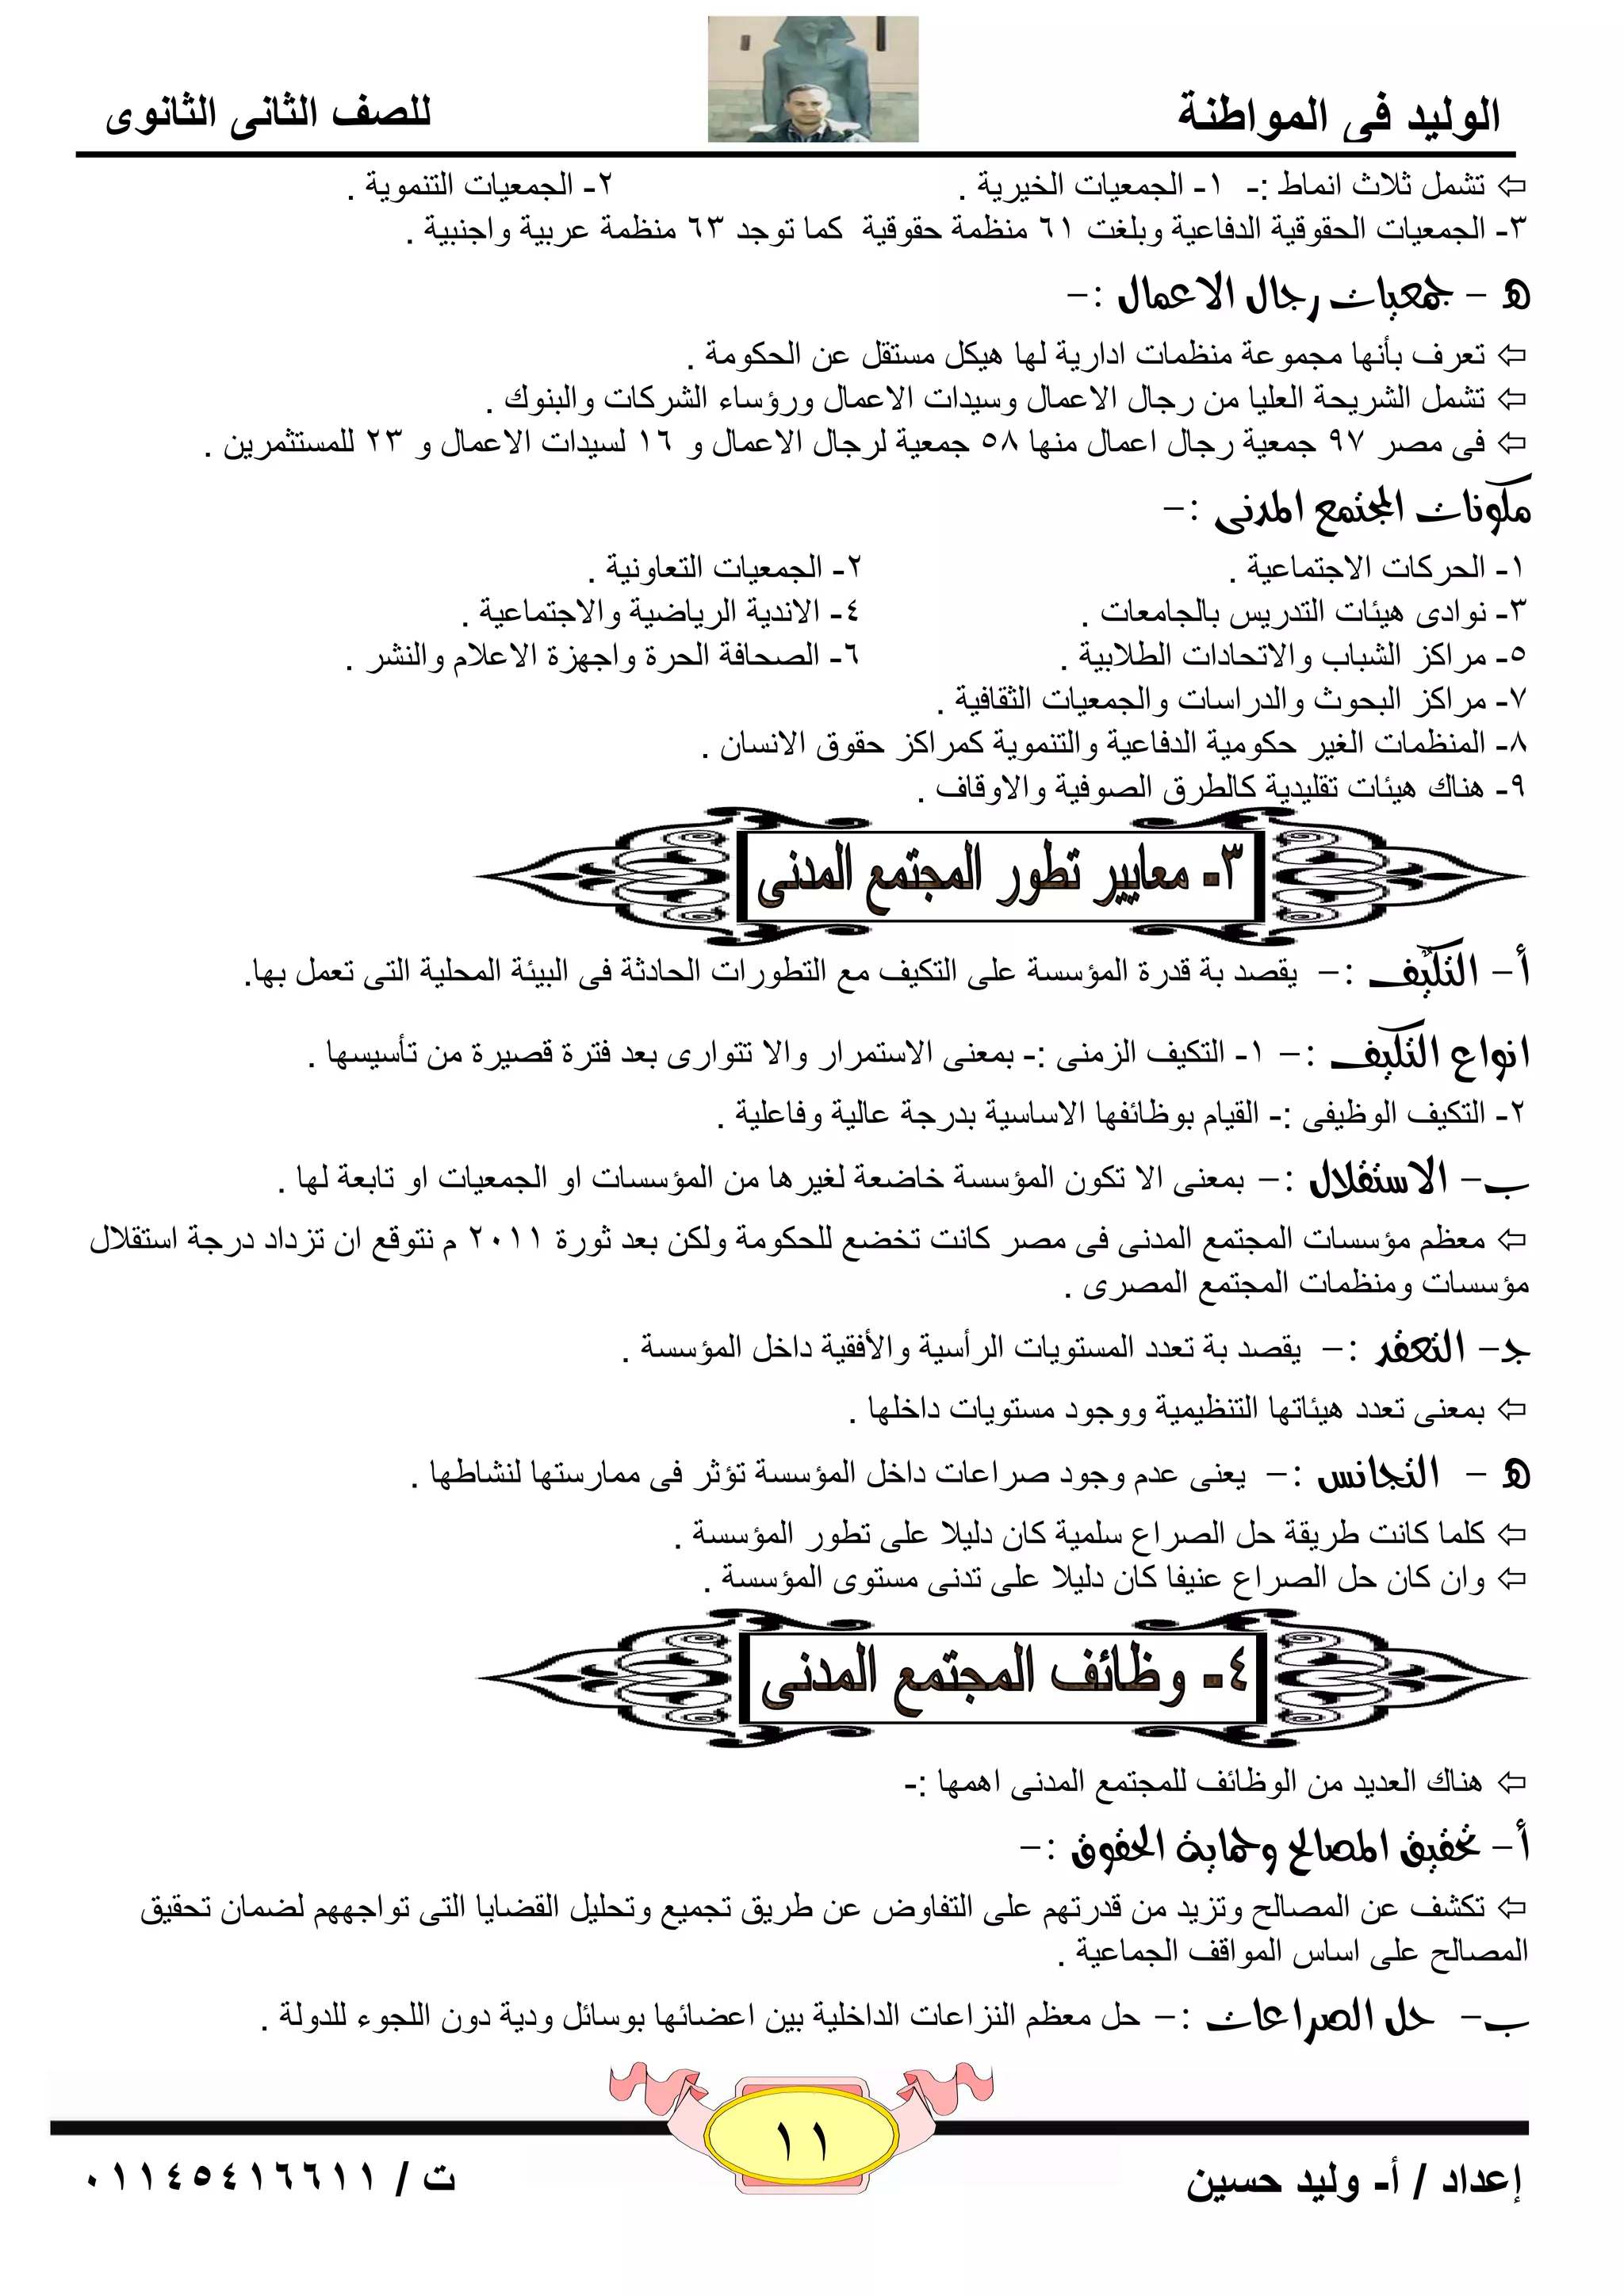 الوليد فى المواطنة
للصف الثانى الثانوى
⇦ تشمل ثلاث انماط :- ١- الجمعيات الخيرية . ٢- الجمعيات التنموية .
٣- الجمعيات الحقوقية الدفاعية وبلغت ٦١ منظمة حقوقية كما توجد ٦٣ منظمة عربية واجنبية .
ه - جمعيات رجال الاعمال :-
⇦ تعرف بأنها مجموعة منظمات ادارية لها هيكل مستقل عن الحكومة .
⇦ تشمل الشريحة العليا من رجال الاعمال وسيدات الاعمال ورؤساء الشركات والبنوك .
⇦ فى مصر ٩٧ جمعية رجال اعمال منها ٥٨ جمعية لرجال الاعمال و ١٦ لسيدات الاعمال و ٢٣ للمستثمرين .
مكونات المجتمع المدنى :-
١- الحركات الاجتماعية . ٢- الجمعيات التعاونية .
٣- نوادى هيئات التدريس بالجامعات . ٤- الاندية الرياضية والاجتماعية .
٥- مراكز الشباب والاتحادات الطلابية . ٦- الصحافة الحرة واجهزة الاعلام والنشر .
٧- مراكز البحوث والدراسات والجمعيات الثقافية .
٨- المنظمات الغير حكومية الدفاعية والتنموية كمراكز حقوق الانسان .
٩- هناك هيئات تقليدية كالطرق الصوفية والاوقاف .
٣- معايير تطور المجتمع المدنى
أ- التكيف :- يقصد بة قدرة المؤسسة على التكيف مع التطورات الحادثة فى البيئة المحلية التى تعمل بها.
انواع التكيف :- ١- التكيف الزمنى :- بمعنى الاستمرار والا تتوارى بعد فترة قصيرة من تأسيسها .
٢- التكيف الوظيفى :- القيام بوظائفها الاساسية بدرجة عالية وفاعلية .
ب- الاستقلال :- بمعنى الا تكون المؤسسة خاضعة لغيرها من المؤسسات او الجمعيات او تابعة لها .
⇦ معظم مؤسسات المجتمع المدنى فى مصر كانت تخضع للحكومة ولكن بعد ثورة ٢٠١١ م نتوقع ان تزداد درجة استقلال
مؤسسات ومنظمات المجتمع المصرى .
ج- التعقد :- يقصد بة تعدد المستويات الرأسية والأفقية داخل المؤسسة .
⇦ بمعنى تعدد هيئاتها التنظيمية ووجود مستويات داخلها .
ه - التجانس :- يعنى عدم وجود صراعات داخل المؤسسة تؤثر فى ممارستها لنشاطها .
⇦ كلما كانت طريقة حل الصراع سلمية كان دليلا على تطور المؤسسة .
⇦ وان كان حل الصراع عنيفا كان دليلا على تدنى مستوى المؤسسة .
٤- وظائف المجتمع المدنى
⇦ هناك العديد من الوظائف للمجتمع المدنى اهمها :-
أ- تحقيق المصالح وحماية الحقوق :-
⇦ تكشف عن المصالح وتزيد من قدرتهم على التفاوض عن طريق تجميع وتحليل القضايا التى تواجههم لضمان تحقيق
المصالح على اساس المواقف الجماعية .
ب- حل الصراعات :- حل معظم النزاعات الداخلية بين اعضائها بوسائل ودية دون اللجوء للدولة .
١١
إعداد / أ- وليد حسين
ت / ٠١١٤٥٤١٦٦١١